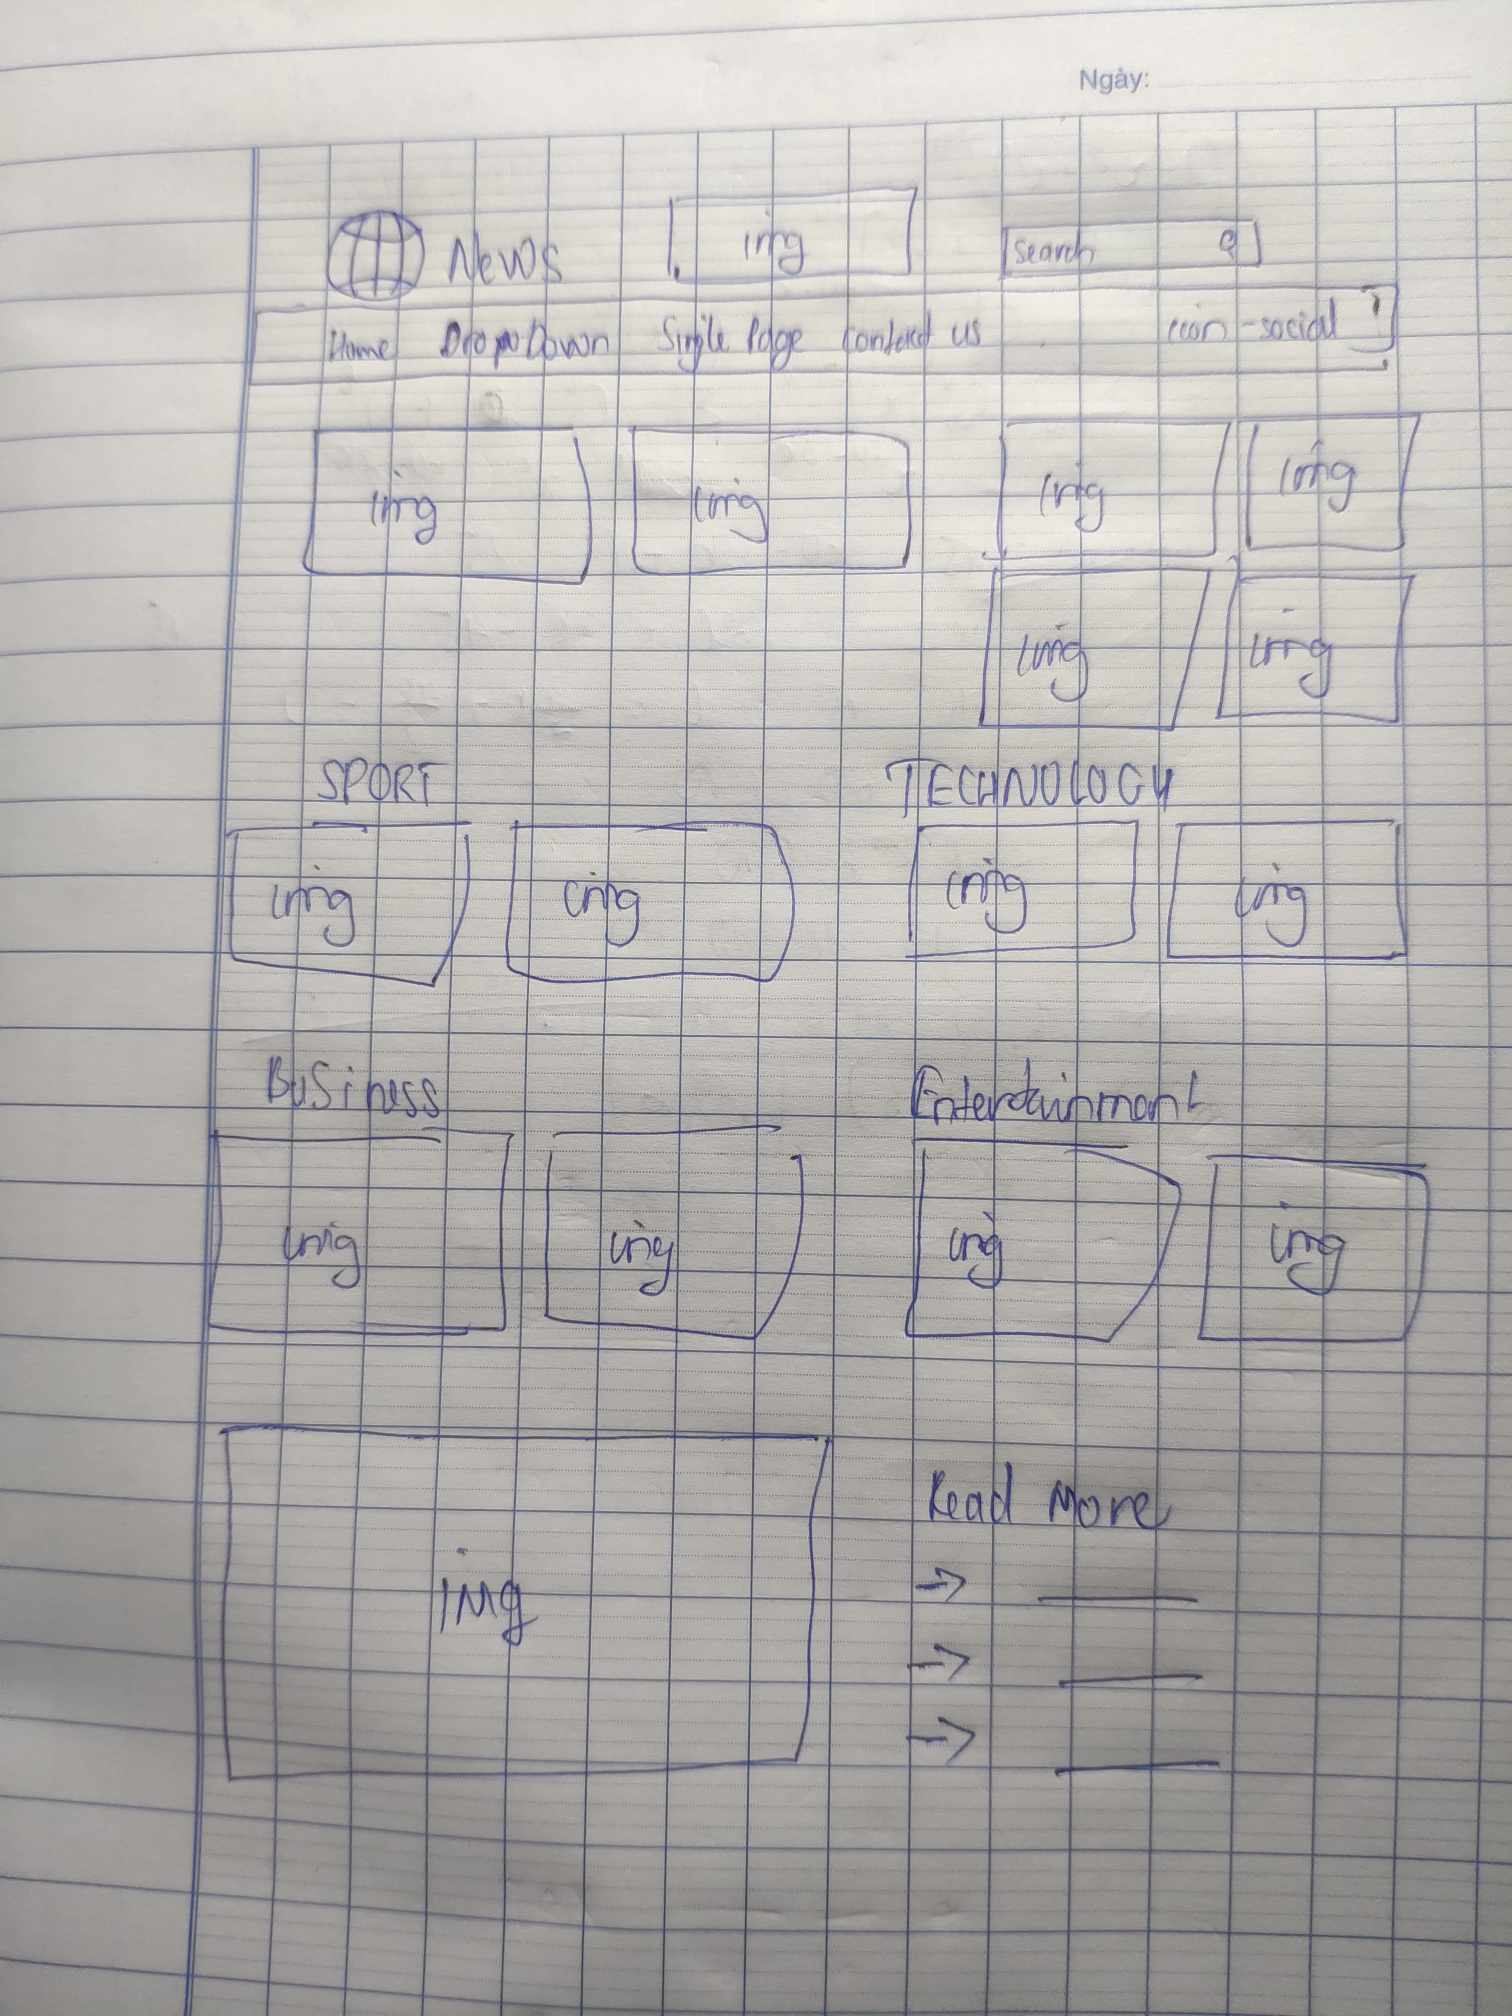 Ngày:
News img Search
Home DropDown Single Page contact us icon-social
img img img img
img img
SPORT TECHNOLOGY
img img img img
Business Entertainment
img img img img
img Read More